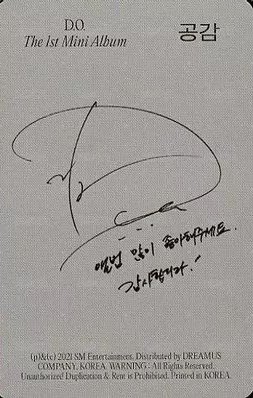 D.O.
The 1st Mini Album
공감
앨범 많이 좋아해주세요.
감사합니다!
(p)&(c) 2021 SM Entertainment. Distributed by DREAMUS
COMPANY, KOREA. WARNING : All Rights Reserved.
Unauthorized Duplication & Rent is Prohibited. Printed in KOREA.